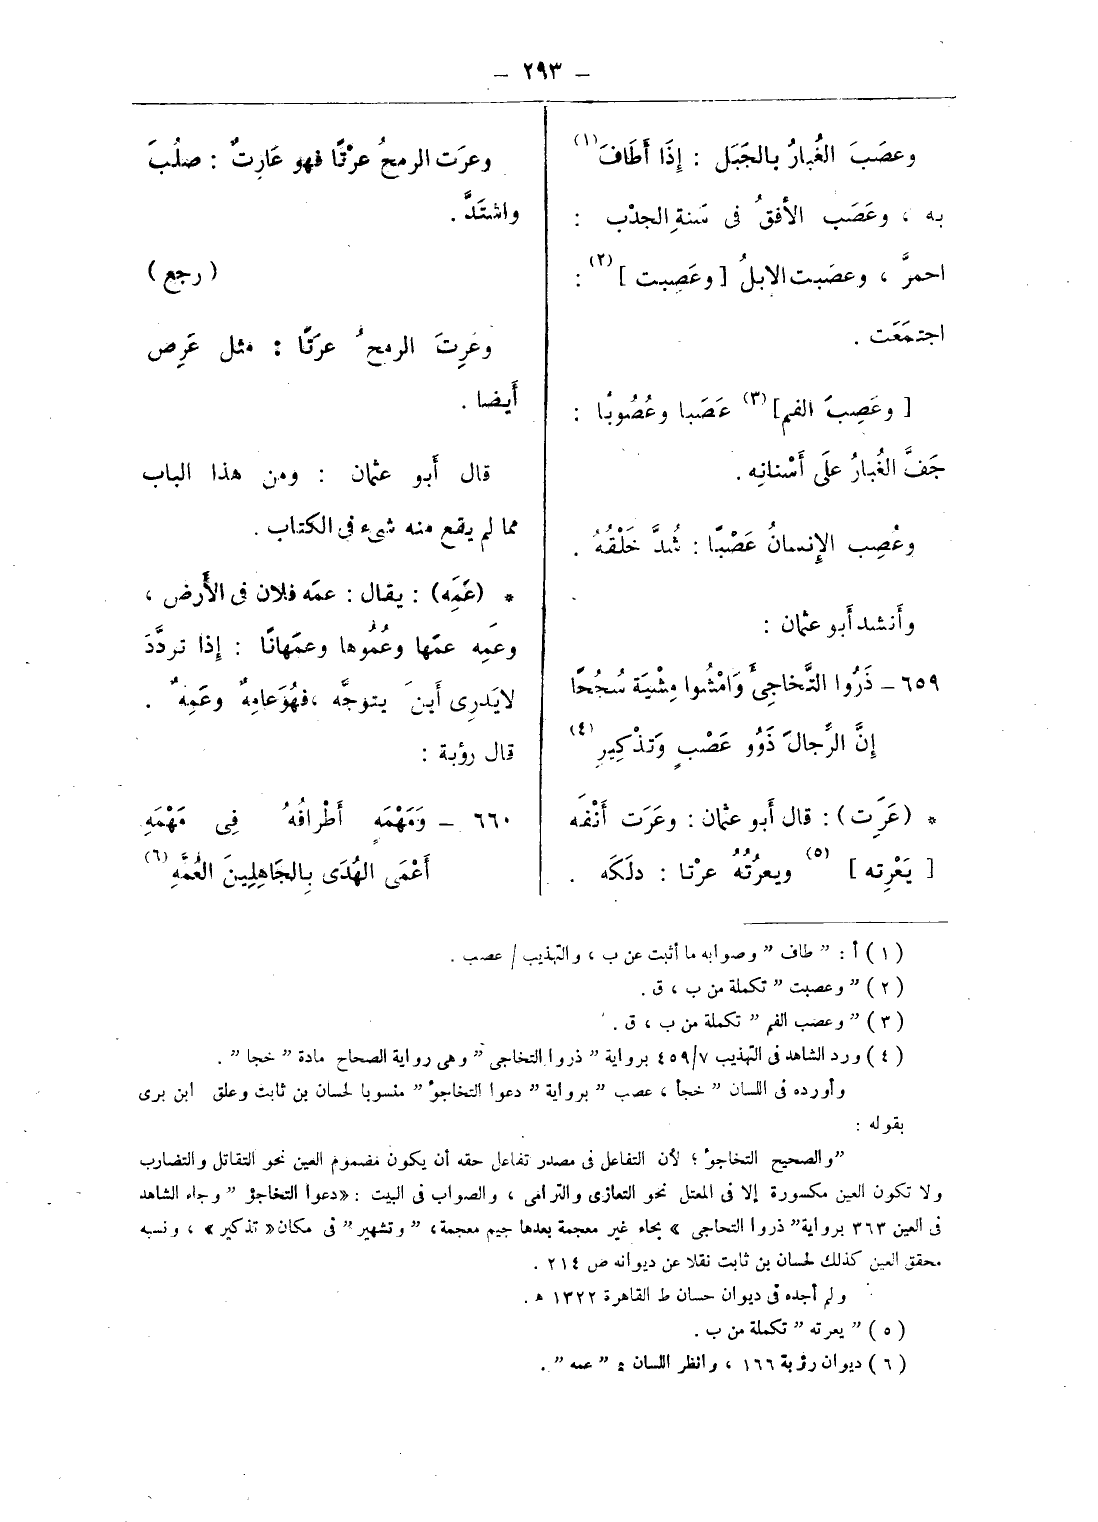 – ٢٩٣ –
وعصَبَ الغُبارُ بالجَبَل : إِذَا أَطَافَ (١)
به ، وعَصَب الأفقُ فى سَنةِ الجدْب :
احمرَّ ، وعصَبت الإبلُ [ وعَصِبت ] (٢) :
اجتمَعَت .
[ وعَصِبَ الفم] (٣) عَصَبا وعُصُوبًا :
جَفَّ الغُبارُ علَى أَسْنانِه .
وعُصِب الإِنسانُ عَصْبًا : شُدَّ خَلْقُهُ .
وأَنشد أَبو عثمان :
٦٥٩ – ذَرُوا التَّخاجِىَٔ وَامْشُوا مِشْيَة سُجُحًا
إِنَّ الرِّجالَ ذَوُو عَصْبٍ وَتذْكِيرِ (٤)
* (عَرَِت) : قال أَبو عثمان : وعَرَت أَنْفَه
[ يَعْرِته ] (٥) ويعرُتُهُ عرْتا : دلَكَه .
وعرَت الرمحُ عرْتًا فهو عَارِتٌ : صلُبَ
واشتَدَّ .
( رجع )
وعَرِتَ الرمحُ عرَتًا : مثل عَرِص
أَيضا .
قال أَبو عثمان : ومن هذا الباب
مما لم يقع منه شىء فى الكتاب .
* (عَمَِه) : يقال : عمَه فلان فى الأَرض ،
وعَمِه عمَها وعُمُوها وعمَهانًا : إِذا تردَّدَ
لايَدرِى أَينَ يتوجَّه ،فهُوَعامِهٌ وعَمِهٌ .
قال رؤبة :
٦٦٠ – وَمَهْمَهٍ أَطْرافُهُ فِى مَهْمَهِ
أَعْمَى الهُدَى بِالجَاهِلِينَ العُمَّهِ (٦)
( ١ ) أ : ” طاف ” وصوابه ما أثبت عن ب ، والتهذيب / عصب .
( ٢ ) ” وعصبت ” تكملة من ب ، ق .
( ٣ ) ” وعصب الفم ” تكملة من ب ، ق .
( ٤ ) ورد الشاهد فى التهذيب ٧/٤٥٩ برواية ” ذروا التخاجى ” وهى رواية الصحاح مادة ” خجا ” .
وأورده فى اللسان ” خجأ ، عصب ” برواية ” دعوا التخاجؤ ” منسوبا لحسان بن ثابت وعلق ابن برى
بقوله :
”والصحيح التخاجؤ ؛ لأن التفاعل فى مصدر تفاعل حقه أن يكون مضموم العين نحو التقاتل والتضارب
ولا تكون العين مكسورة إلا فى المعتل نحو التعازى والترامى ، والصواب فى البيت : «دعوا التخاجؤ ” وجاء الشاهد
فى العين ٣٦٣ برواية” ذروا التحاجى » بحاء غير معجمة بعدها جيم معجمة، ” وتشهير ” فى مكان« تذكير » ، ونسبه
محقق العين كذلك لحسان بن ثابت نقلا عن ديوانه ص ٢١٤ .
ولم أجده فى ديوان حسان ط القاهرة ١٣٢٢ ه .
( ٥ ) ” يعرته ” تكملة من ب .
( ٦ ) ديوان رؤبة ١٦٦ ، وانظر اللسان : ” عمه ” .